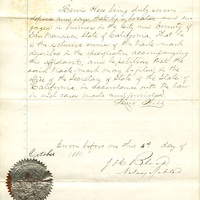 being duly sworn
deposes and says that he is a resident and en-
gaged in business in the City and County of
San Francisco, State of California. That he
is the exclusive owner of the Trade mark
described in the specification accompanying
this affidavit, and
said Trade mark may be placed in the office
of the Secretary of State of the State of
California, in accordance with the law
in such cases made and provided.
Sworn before me this day of
October
Notary Public